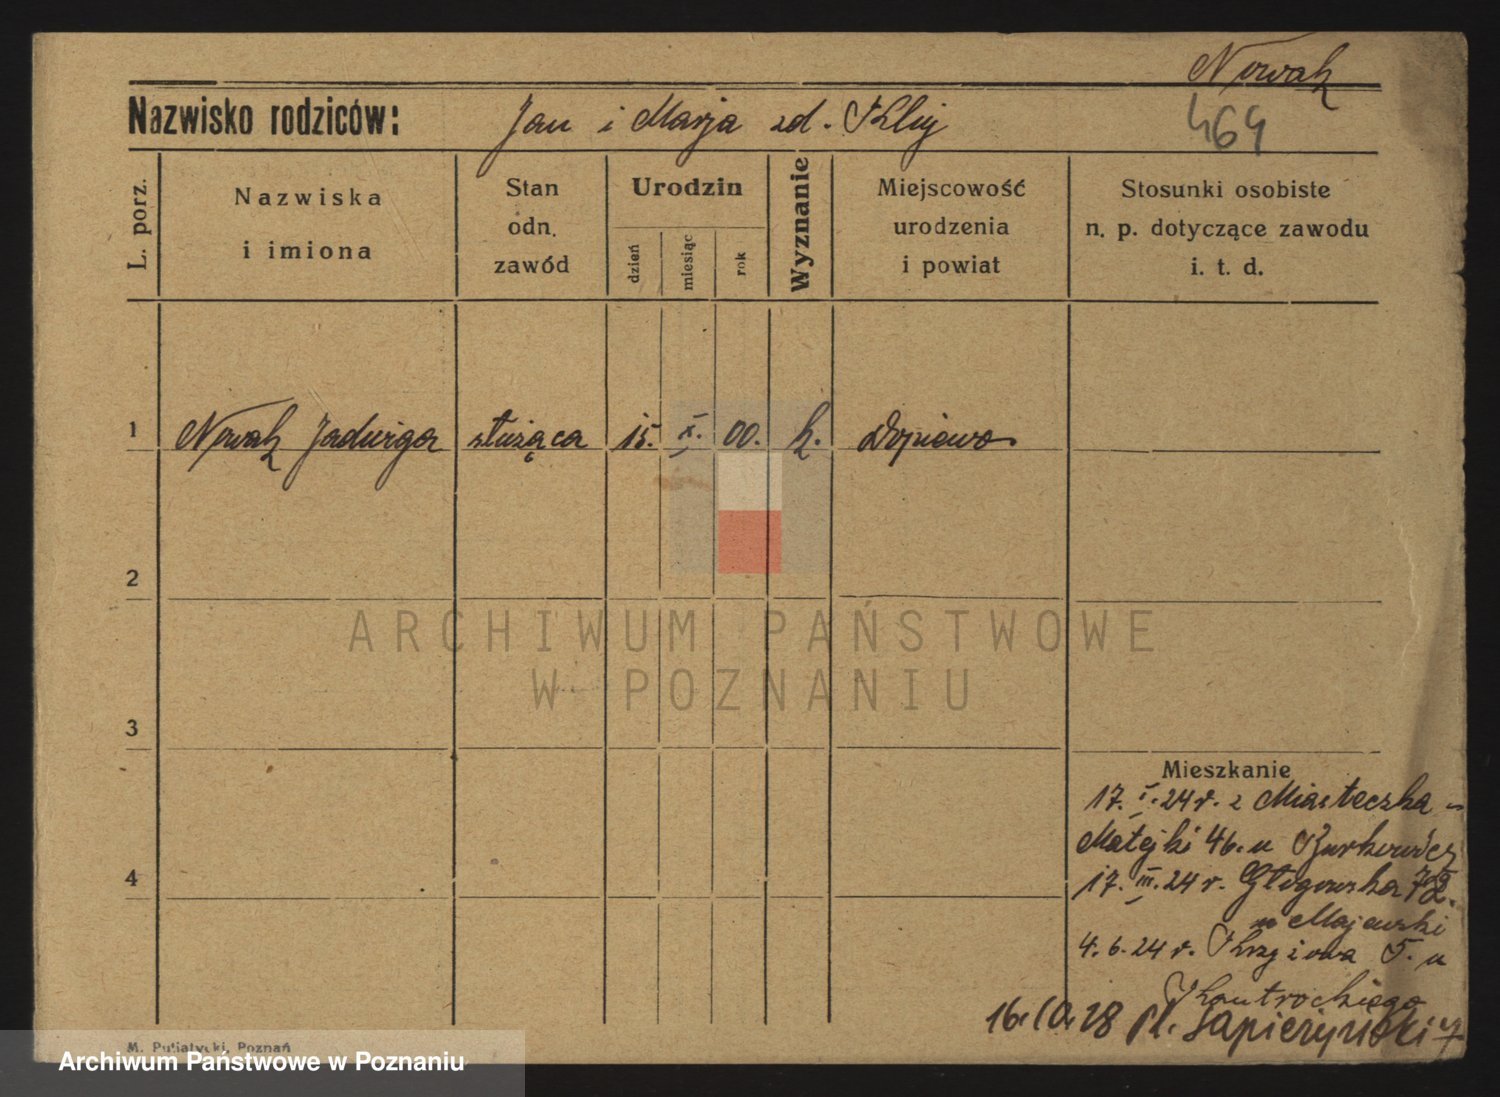 Nowak
Nazwisko rodziców: Jan i Marja zd. Kluj
464
L. porz.
Nazwiska
i imiona
Stan
odn.
zawód
Urodzin
dzień
miesiąc
rok
Wyznanie
Miejscowość
urodzenia
i powiat
Stosunki osobiste
n. p. dotyczące zawodu
i. t. d.
1 Nowak Jadwiga służąca 15. X. 00. k. Dopiewo
2
ARCHIWUM PAŃSTWOWE
W POZNANIU
3
Mieszkanie
17. I. 24 r. z Miasteczka
Matejki 46. u
4
17. III. 24 r. Głogowska 72.
u Majewski
4. 6. 24 r. Krzyżowa 5. u
16. 10. 28 Pl. Sapieżyński 7.
M. Putiatycki, Poznań
Archiwum Państwowe w Poznaniu